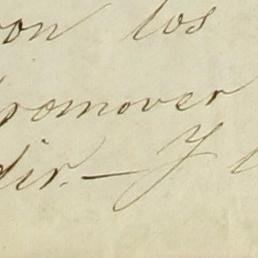 ron los
romover
dir. — Y